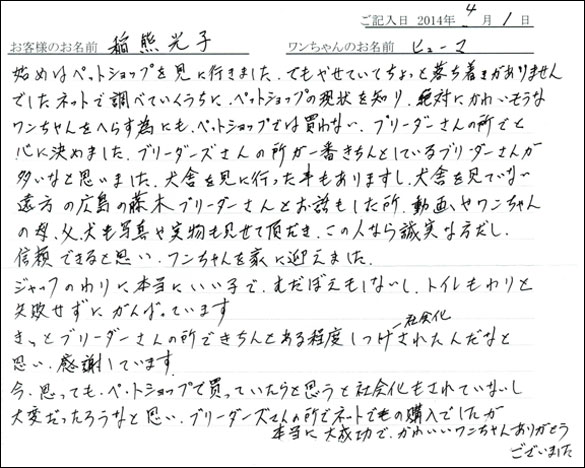 ご記入日 2014年 4月 1日
お客様のお名前 稲熊光子 ワンちゃんのお名前 ヒューマ
始めはペットショップを見に行きました。でもやせていてちょっと落ち着きがありません
でした。ネットで調べていくうちに、ペットショップの現状を知り、絶対にかわいそうな
ワンちゃんをへらす為にも、ペットショップでは買わない、ブリーダーさんの所でと
心に決めました。ブリーダーズさんの所が一番きちんとしているブリーダーさんが
多いなと思いました。犬舎を見に行った事もありますし、犬舎を見ていない
遠方の広島の藤木ブリーダーさんとお話もした所、動画やワンちゃん
の母、父、犬も写真や実物も見せて頂だき、この人なら誠実な方だし、
信頼できると思い、ワンちゃんを家に迎えました。
ジャックのわりに本当にいい子で、むだぼえもしないし、トイレもわりと
失敗せずにがんばっています
きっとブリーダーさんの所できちんとある程度しつけ社会化されたんだなと
思い、感謝しています。
今、思っても、ペットショップで買っていたらと思うと社会化もされていないし
大変だったろうなと思い、ブリーダーズさんの所でネットでもの購入でしたが
本当に大成功で、かわいいワンちゃんありがとう
ございました